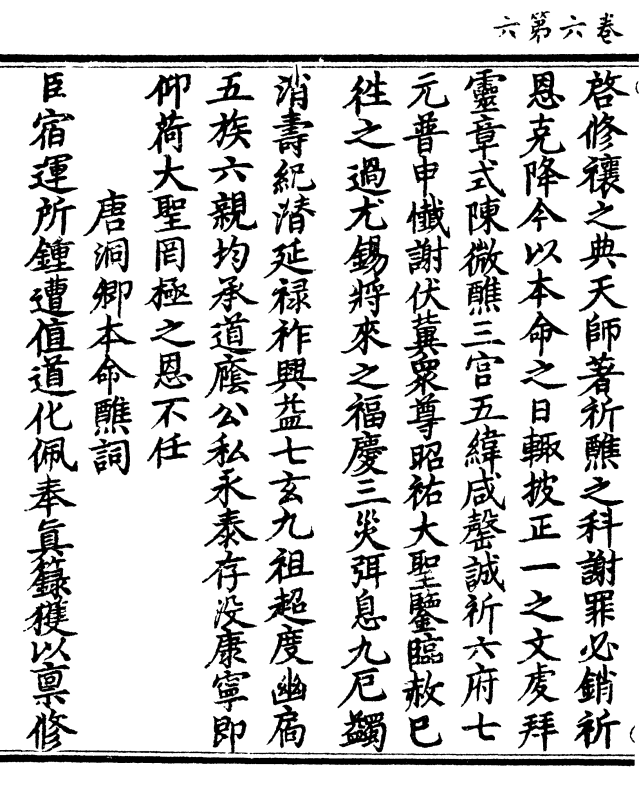 卷六第六
啓修禳之典天師著祈醮之科謝罪必銷祈
恩克降今以本命之日輙披正一之文虔拜
靈章式陳微醮三官五緯咸罄誠祈六府七
元普申懺謝伏冀衆尊昭祐大聖鑒臨赦已
徃之過尤錫將來之福慶三災弭息九厄蠲
消壽紀潜延禄祚興益七玄九祖超度幽扃
五族六親均承道廕公私永泰存没康寧即
仰荷大聖罔極之恩不任
唐洞卿本命醮詞
臣宿運所鍾遭值道化佩奉眞籙獲以禀修